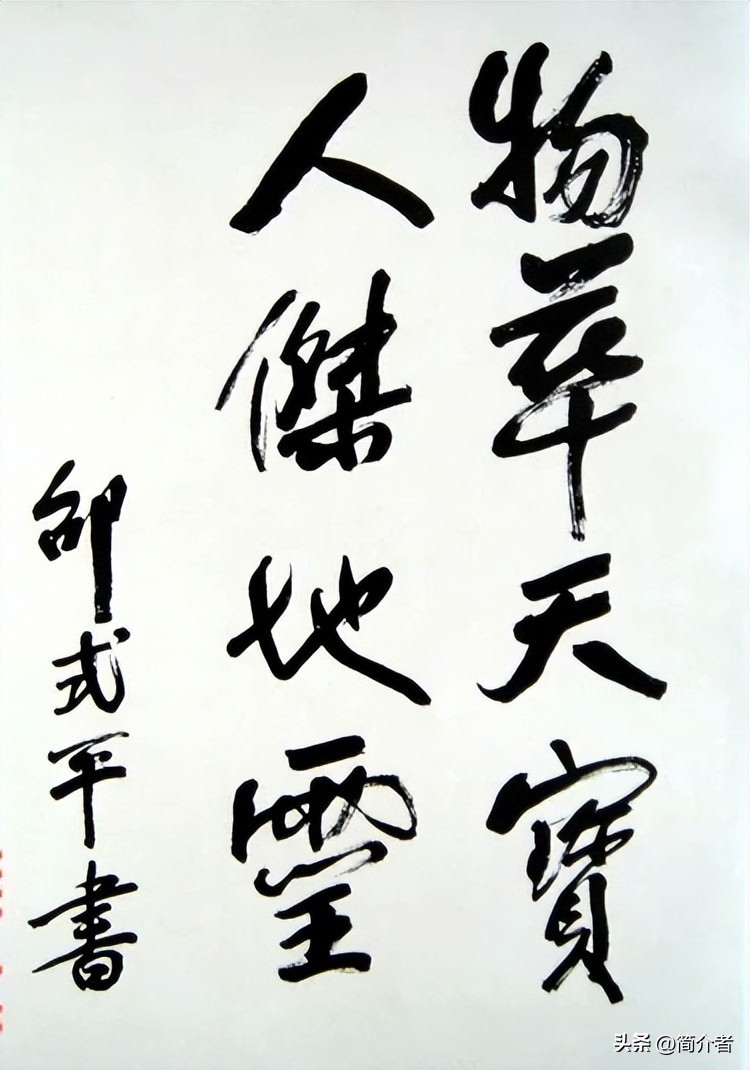 物華天寶
人傑地靈
邵式平書
头条 @简介者